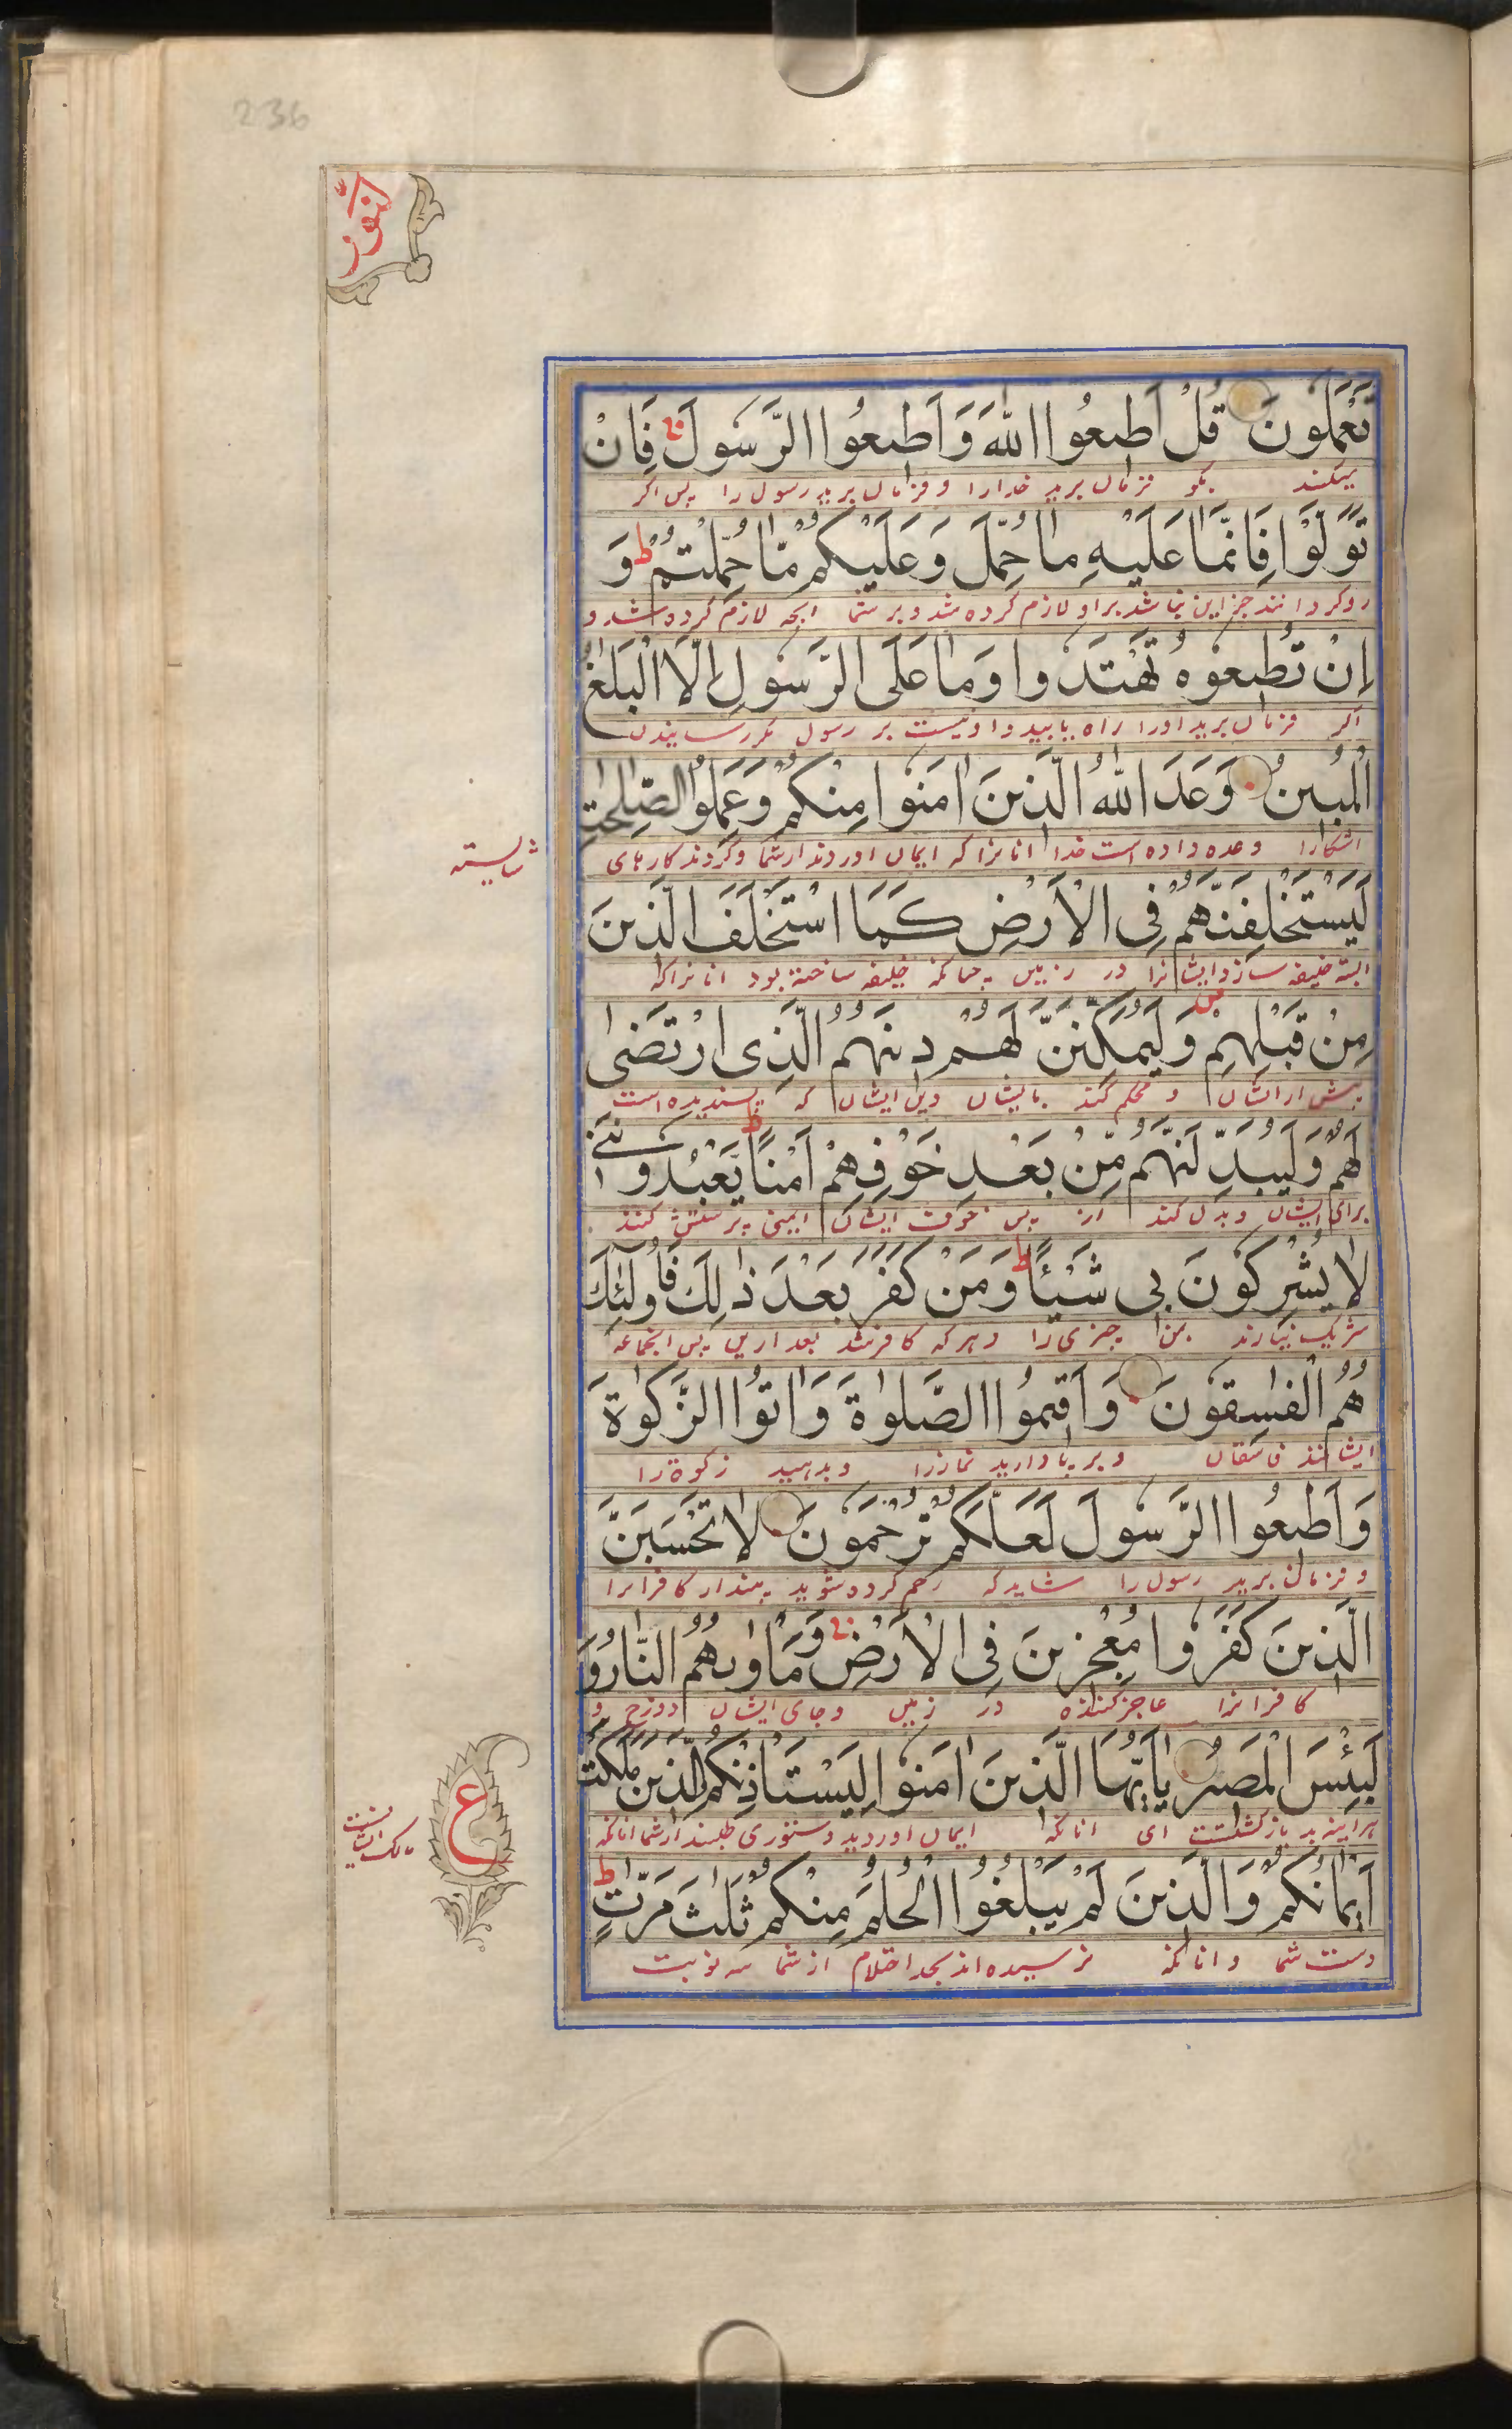 236
النور
تَعْمَلُونَ قُلْ اَطِيعُوا اللّٰهَ وَاَطِيعُوا الرَّسُولَ فَاِنْ
میکنید بگو فرمان برید خدا را و فرمان برید رسول را پس اگر
تَوَلَّوْا فَاِنَّمَا عَلَيْهِ مَا حُمِّلَ وَعَلَيْكُمْ مَّا حُمِّلْتُمْ ط وَ
رو کردانند جز این نباشد بر او لازم کرده شد و بر شما انچه لازم کرده شد و
اِنْ تُطِيعُوهُ تَهْتَدُوا وَمَا عَلَى الرَّسُولِ اِلَّا الْبَلٰغُ
اگر فرمان برید او را راه یابید و نیست بر رسول مگر رسانیدن
الْمُبِينُ وَعَدَ اللّٰهُ الَّذِينَ اٰمَنُوا مِنْكُمْ وَعَمِلُوا الصّٰلِحٰتِ
اشکارا وعده داده است خدا انانرا که ایمان اوردند از شما و کردند کارهای
شایسته
لَيَسْتَخْلِفَنَّهُمْ فِى الْاَرْضِ كَمَا اسْتَخْلَفَ الَّذِينَ
البته خلیفه سازد ایشانرا در زمین چنانکه خلیفه ساخته بود انانرا که
مِنْ قَبْلِهِمْ وَلَيُمَكِّنَنَّ لَهُمْ دِينَهُمُ الَّذِى ارْتَضٰى
پیش از ایشان و محکم کند بایشان دین ایشان که پسندیده است
لَهُمْ وَلَيُبَدِّلَنَّهُمْ مِّنْ بَعْدِ خَوْفِهِمْ اَمْنًا ط يَعْبُدُونَنِى
برای ایشان و بدل کند از پس خوف ایشان ایمنی پرستش کنند
لَا يُشْرِكُونَ بِى شَيْئًا ط وَمَنْ كَفَرَ بَعْدَ ذٰلِكَ فَاُولٰئِكَ
شریک نیارند بمن چیزی را و هر که کافر شد بعد ازین پس انجماعه
هُمُ الْفٰسِقُونَ وَاَقِيمُوا الصَّلٰوةَ وَاٰتُوا الزَّكٰوةَ
ایشانند فاسقان و برپا دارید نماز را و بدهید زکوة را
وَاَطِيعُوا الرَّسُولَ لَعَلَّكُمْ تُرْحَمُونَ لَا تَحْسَبَنَّ
و فرمان برید رسول را شاید که رحم کرده شوید مپندار کافرانرا
الَّذِينَ كَفَرُوا مُعْجِزِينَ فِى الْاَرْضِ وَمَاْوٰىهُمُ النَّارُ وَ
کافرانرا عاجز کننده در زمین و جای ایشان دوزخ و
لَبِئْسَ الْمَصِيرُ يٰاَيُّهَا الَّذِينَ اٰمَنُوا لِيَسْتَاْذِنْكُمُ الَّذِينَ مَلَكَتْ
هر اینه بد بازگشتست ای انانکه ایمان اوردید دستوری طلبند از شما انانکه
ع
مالک ایشانست
اَيْمَانُكُمْ وَالَّذِينَ لَمْ يَبْلُغُوا الْحُلُمَ مِنْكُمْ ثَلٰثَ مَرّٰتٍ ط
دست شما و انانکه نرسیده اند بحد احتلام از شما سه نوبت